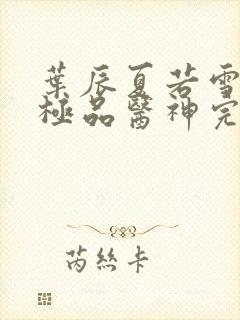 葉辰夏若雪
極品醫神完
芮絲卡